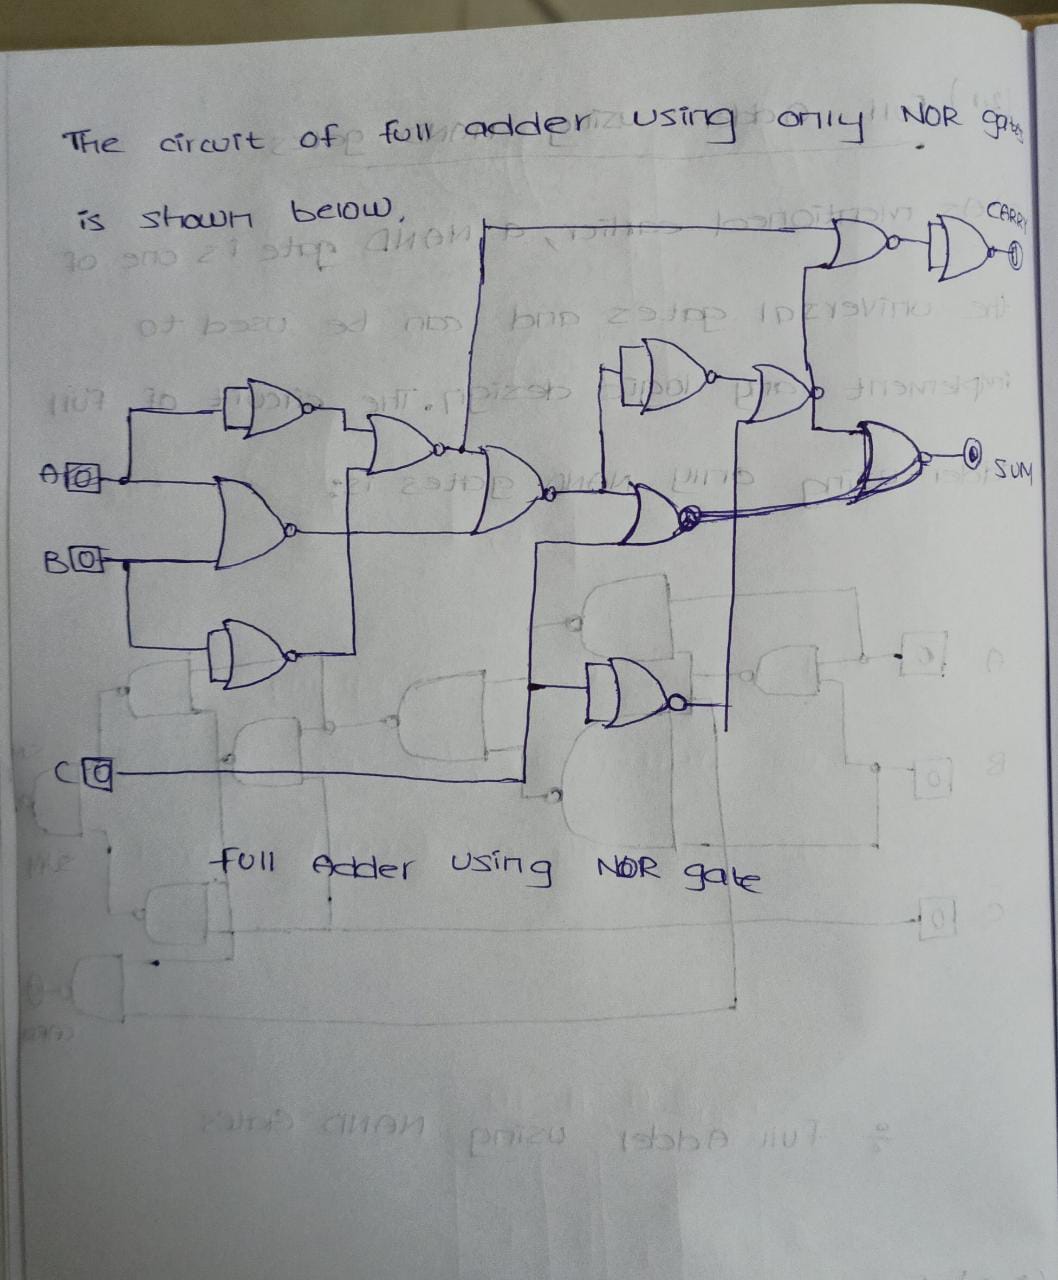 The circuit of full adder using only NOR gates
is shown below,
CARRY
A
SUM
B
C
Full Adder using NOR gate